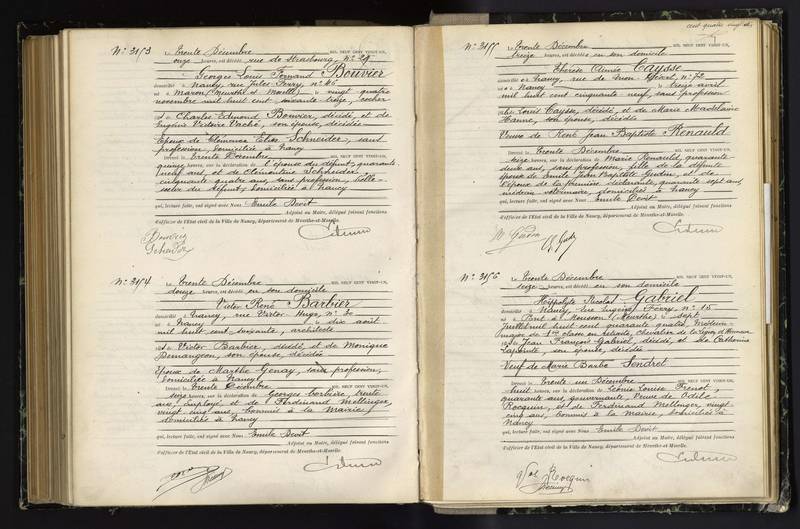 N° 3153
Le Trente Décembre MIL NEUF CENT VINGT-UN,
onze heures, est décédé rue de Strasbourg, n° 29
Georges Louis Fernand Bouvier
domicilié à Nancy rue Jules Ferry, n° 45
né à Maron (Meurthe et Moselle) le vingt quatre
novembre mil huit cent soixante treize, cocher
fils de Charles Edmond Bouvier, décédé, et de
Eugénie Victoire Vache, son épouse, décédée
Epoux de Clémence Schneider, sans
profession, domiciliée à Nancy
Dressé le Trente Décembre MIL NEUF CENT VINGT-UN,
quinze heures, sur la déclaration de l'épouse du défunt, quarante
neuf ans, et de Clémentine Schneider
cinquante quatre ans, sans profession, belle-
sœur du défunt, domiciliées à Nancy
qui, lecture faite, ont signé avec Nous Emile Devit
Adjoint au Maire, délégué faisant fonctions
d'officier de l'État civil de la Ville de Nancy, département de Meurthe-et-Moselle.
N° 3154
Le Trente Décembre MIL NEUF CENT VINGT-UN,
douze heures, est décédé en son domicile
Victor René Barbier
domicilié à Nancy, rue Victor Hugo, n° 30
né à Nancy le dix août
mil huit cent soixante, architecte
fils de Victor Barbier, décédé, et de Monique
Demangeon, son épouse, décédée
Epoux de Marthe Genay, sans profession,
domiciliée à Nancy
Dressé le Trente Décembre MIL NEUF CENT VINGT-UN,
seize heures, sur la déclaration de Georges Corbière, trente
six, employé et de Ferdinand Mellinger,
vingt cinq ans, Commis à la Mairie,
domiciliés à Nancy
qui, lecture faite, ont signé avec Nous Emile Devit
Adjoint au Maire, délégué faisant fonctions
d'officier de l'État civil de la Ville de Nancy, département de Meurthe-et-Moselle.
cent quatre vingt
N° 3155
Le Trente Décembre MIL NEUF CENT VINGT-UN,
treize heures, est décédée en son domicile
Thérèse Aimée Caysse
domiciliée à Nancy, rue de Mon Désert, n° 72
née à Nancy le treize avril
mil huit cent cinquante neuf, sans profession
fille de Louis Caysse, décédé, et de Marie Madeleine
Hanne, son épouse, décédée
Veuve de René Jean Baptiste Renauld
Dressé le Trente Décembre MIL NEUF CENT VINGT-UN,
seize heures, sur la déclaration de Marie Renauld, quarante-
deux ans, sans profession, fille de la défunte
épouse de Emile Jean Baptiste Gudin, et de
l'époux de la première déclarante, quarante sept ans,
médecin vétérinaire, domiciliés à Nancy
qui, lecture faite, ont signé avec Nous Emile Devit
Adjoint au Maire, délégué faisant fonctions
d'officier de l'État civil de la Ville de Nancy, département de Meurthe-et-Moselle.
N° 3156
Le Trente Décembre MIL NEUF CENT VINGT-UN,
seize heures, est décédé en son domicile
Hippolyte Nicolas Gabriel
domicilié à Nancy, rue Eugène Ferry, n° 15
né à Pont à Mousson (Meurthe) le sept
Juillet mil huit cent quarante quatre, médecin-
major de 1ère classe en retraite, Chevalier de la Légion d'Honneur
fils de Jean François Gabriel, décédé, et de Catherine
Lapointe, son épouse, décédée
Veuf de Marie Barbe Sendret
Dressé le Trente un Décembre MIL NEUF CENT VINGT-UN,
huit heures, sur la déclaration de Léonie Louise Frenot,
quarante ans, gouvernante, Veuve de Odile
Rocquin, et de Ferdinand Mellinger, vingt-
cinq ans, Commis à la mairie, domiciliés à
Nancy
qui, lecture faite, ont signé avec Nous Emile Devit
Adjoint au Maire, délégué faisant fonctions
d'officier de l'État civil de la Ville de Nancy, département de Meurthe-et-Moselle.